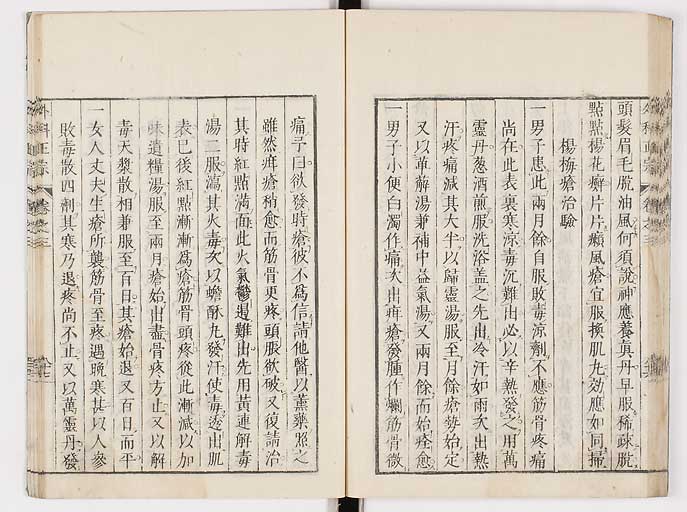 頭髮眉毛脫油風何須說神應養真丹早服稀疎脫
點點楊花癬片片癩風瘡宜服換肌丸效應如同掃
楊梅瘡治驗
一男子患此兩月餘自服敗毒涼劑不應筋骨疼痛
尚在此表裏寒涼毒沉難出必以辛熱發之用萬
靈丹葱酒煎服洗浴蓋之先出冷汗如雨次出熱
汗疼痛減其大半以歸靈湯服至月餘瘡勢始定
又以萆薢湯兼補中益氣湯又兩月餘而始痊愈
一男子小便白濁作痛次出疳瘡發腫作爛筋骨微
痛予曰欲發時瘡彼不爲信請他醫以薰藥照之
雖然疳瘡稍愈而筋骨更疼頭脹欲破又復請治
其時紅點滿面此火氣鬱遏難出先用黃連解毒
湯二服瀉其火毒次以蟾酥丸發汗使毒透出肌
表已後紅點漸漸爲瘡筋骨頭疼從此漸減以加
味遺糧湯服至兩月瘡始出盡骨疼方止又以解
毒天漿散相兼服至百日其瘡始退又百日而平
一女人丈夫生瘡所襲筋骨至疼遇晚寒甚以人參
敗毒散四劑其寒乃退疼尚不止又以萬靈丹發
外科正宗
卷之三